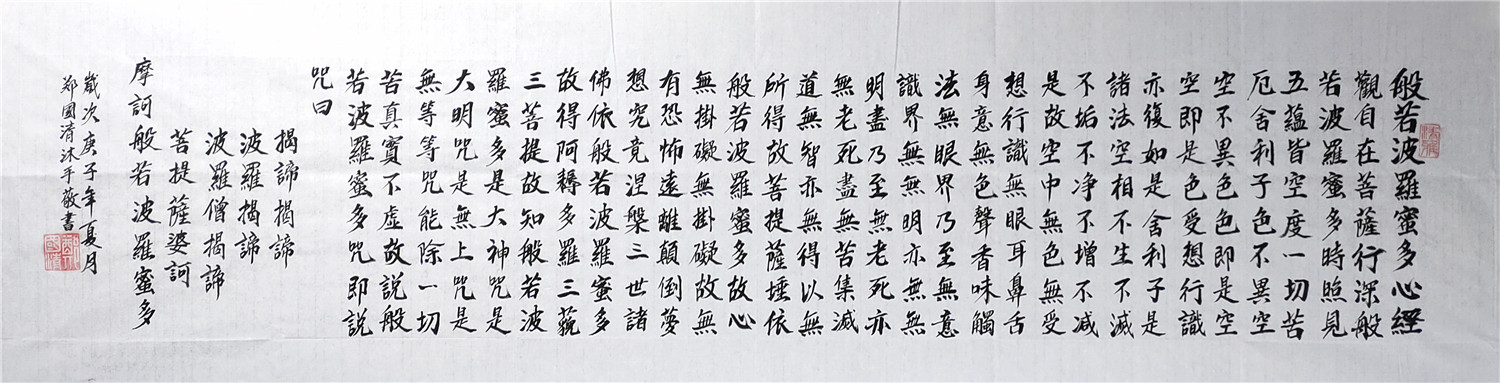 般若波羅蜜多心經
觀自在菩薩行深般
若波羅蜜多時照見
五蘊皆空度一切苦
厄舍利子色不異空
空不異色色即是空
空即是色受想行識
亦復如是舍利子是
諸法空相不生不滅
不垢不净不增不减
是故空中無色無受
想行識無眼耳鼻舌
身意無色聲香味觸
法無眼界乃至無意
識界無無明亦無無
明盡乃至無老死亦
無老死盡無苦集滅
道無智亦無得以無
所得故菩提薩埵依
般若波羅蜜多故心
無掛礙無掛礙故無
有恐怖遠離顛倒夢
想究竟涅槃三世諸
佛依般若波羅蜜多
故得阿耨多羅三藐
三菩提故知般若波
羅蜜多是大神咒是
大明咒是無上咒是
無等等咒能除一切
苦真實不虛故説般
若波羅蜜多咒即説
咒曰
揭諦揭諦
波羅揭諦
波羅僧揭諦
菩提薩婆訶
摩訶般若波羅蜜多
歲次庚子年夏月
郑國清沐手敬書